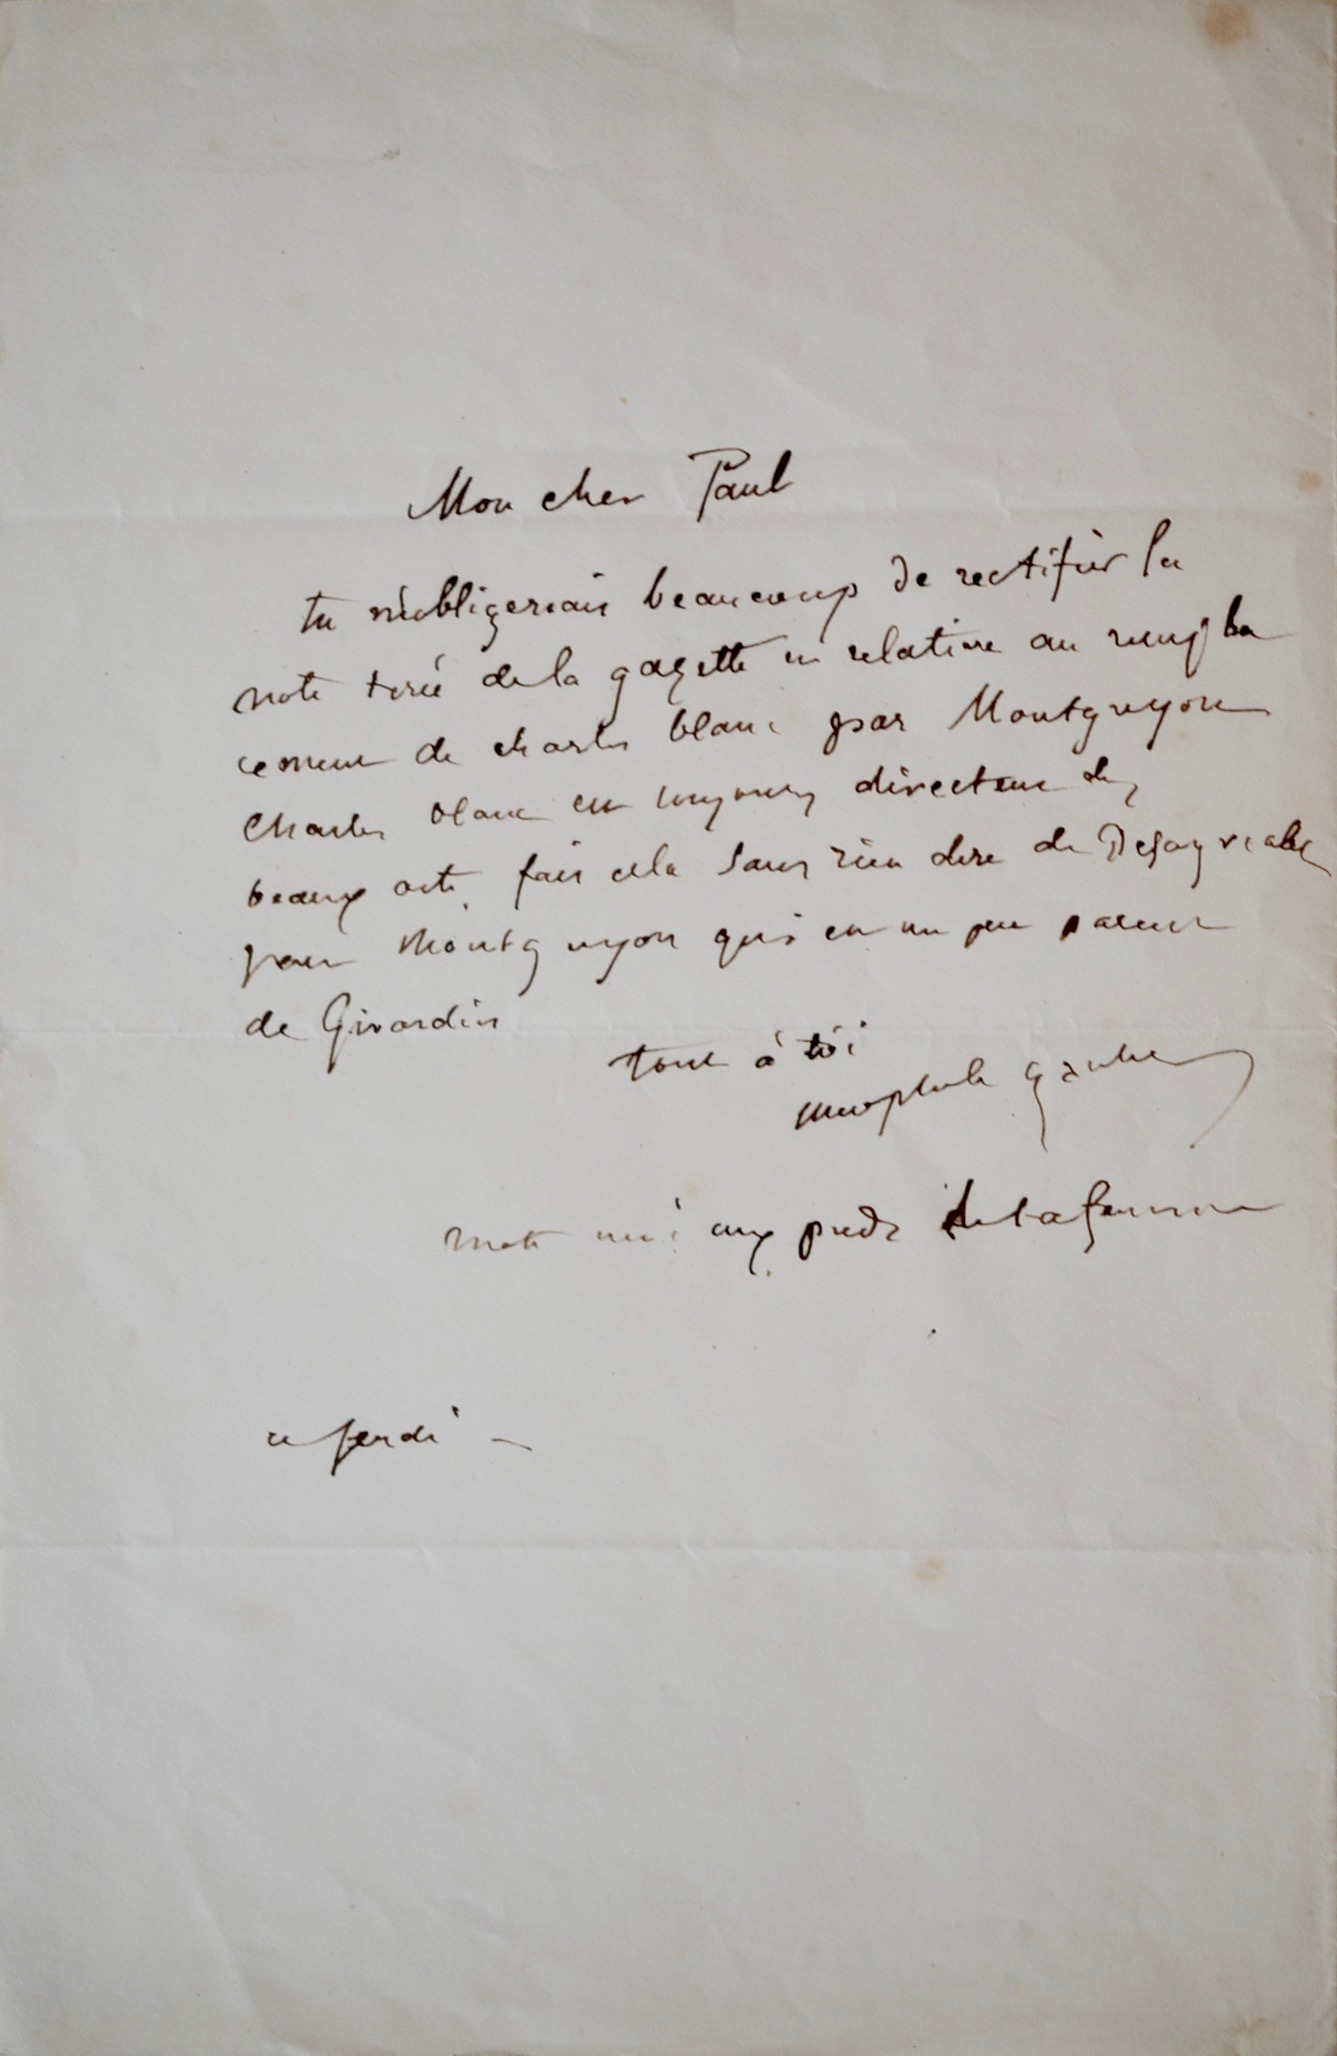 Mon cher Paul
tu m'obligerais beaucoup de rectifier la
note tirée de la gazette et relative au rempla
cement de charles blanc par Montguyon
Charles blanc est toujours directeur des
beaux arts. fais cela sans rien dire de Desagreable
pour Montguyon qui est un peu parent
de Girardin
tout à toi
theophile gautier
mets moi aux pieds de ta femme
ce jeudi -